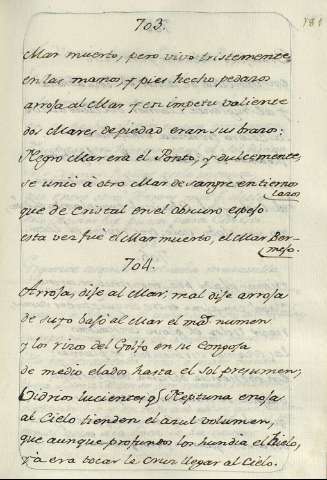 703.
Mar muerto, pero vivo tristemente,
en las manos, y pies hecho pedazos
arroja al Mar y en impetu valiente
dos Mares de piedad eran sus brazos:
Negro Mar era el Ponto, y dulcemente,
se unió à otro Mar de sangre en tiernos
lazos,
que de cristal en el obscuro espeso
esta vez fuè el Mar muerto, el Mar Ber-
mejo.
704.
Arroja, dise al Mar; mal dise arroja
de suyo bajó al Mar el numen
y los rizos del Golfo en su congoja
de medio elados hasta el Sol presumen;
Vidrios lucientes q̃ Neptuno enoja
al Cielo tienden el azul volumen,
que aunque profuntos los hundia el Cielo,
ya era tocar la Cruz llegar al Cielo.